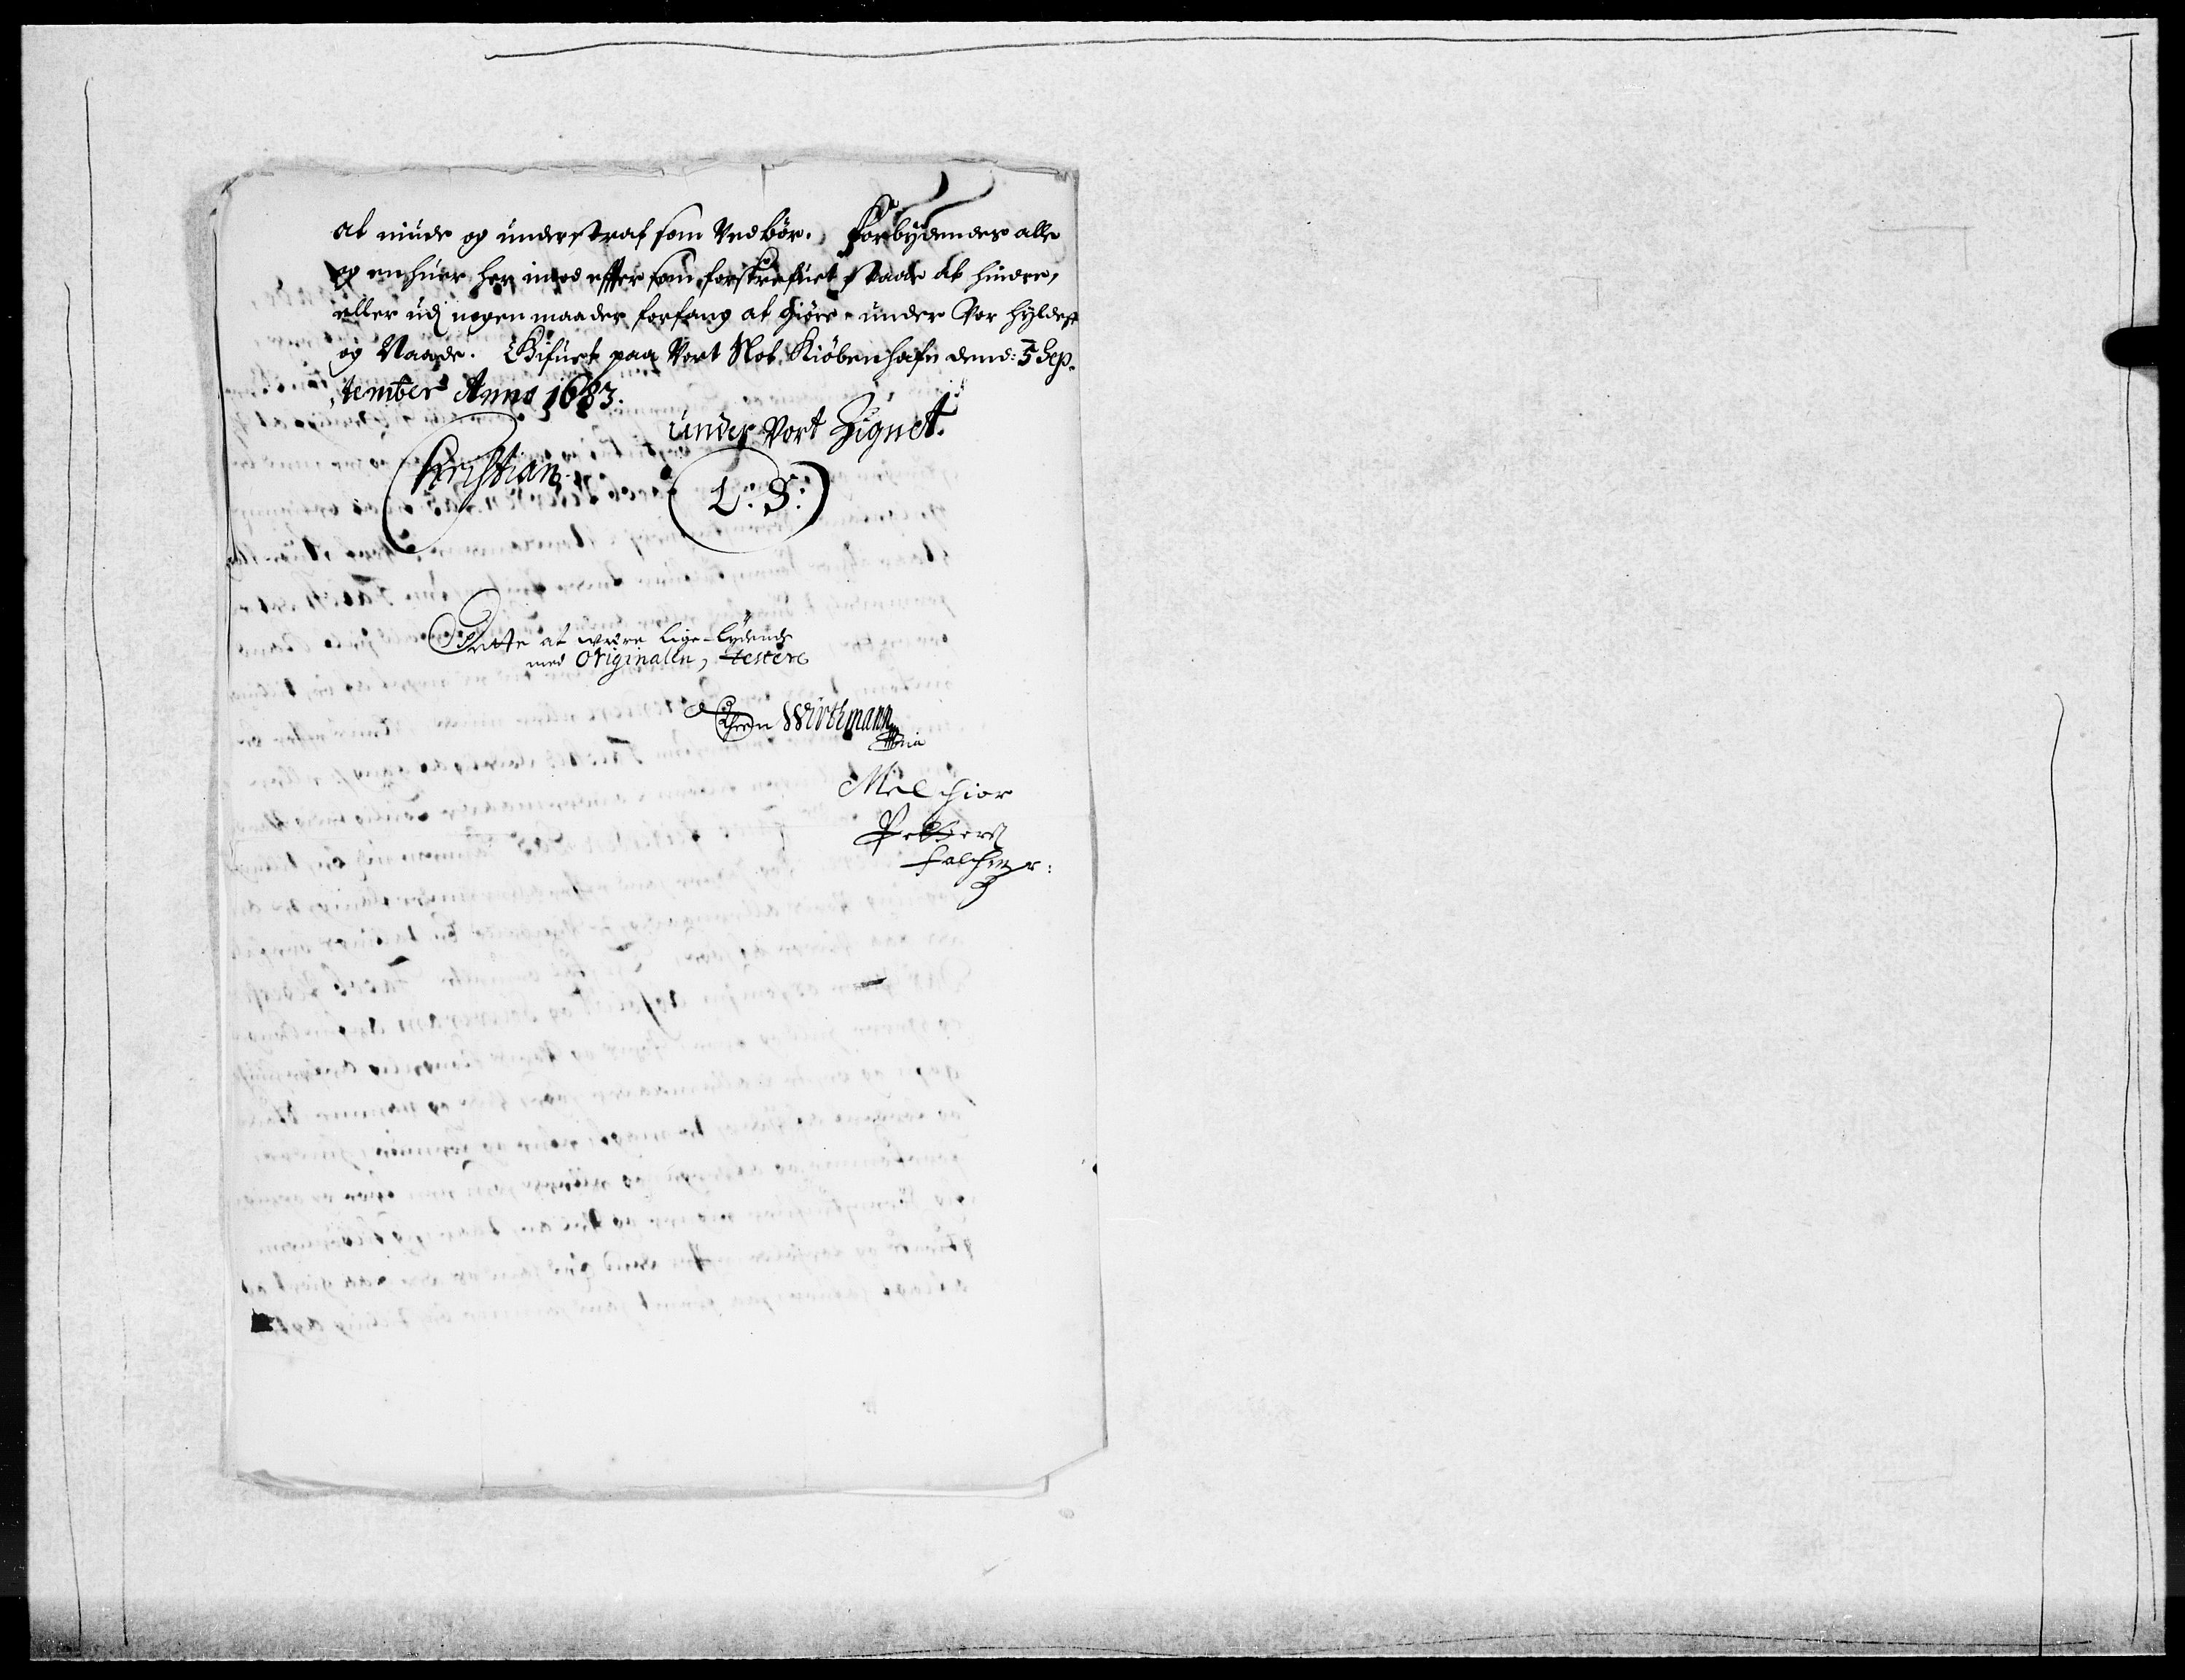 at niude og understraf som ved bör. Forbydendes alle
og en huer her imod effter som forskrefuet staar at hindre,
eller udj nogen maader forfang at giöre under Vor hyldest
og Naade. Gifuet paa Vort Slot Kiöbenhafn dend: 5 Sep-
tember Anno 1683.
Under Vort Zignet.
Christian
L: S:
Dette at were lige-lydende
med Originalen, testere
Wirthmann
Melchior
Falch